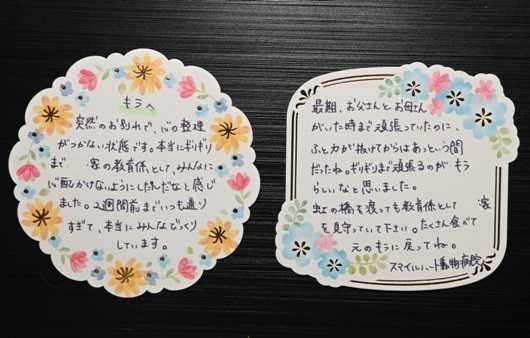 もうへ
突然のお別れで、心の整理
がつかない状態です。本当にギリギリ
まで 家の教育係として、みんなに
心配かけないようにしたんだなと感じ
ました。2週間前までいつも通り
すぎて、本当にみんなびっくり
しています。
最期、お父さんとお母さん
がいた時まで頑張っていたのに、
ふと力が抜けてからはあっという間
だったね。ギリギリまで頑張るのが もう
らしいなと思いました。
虹の橋を渡っても教育係として 家
を見守っていて下さい。たくさん食べて
元のもうに戻ってね。
スマイルハート動物病院